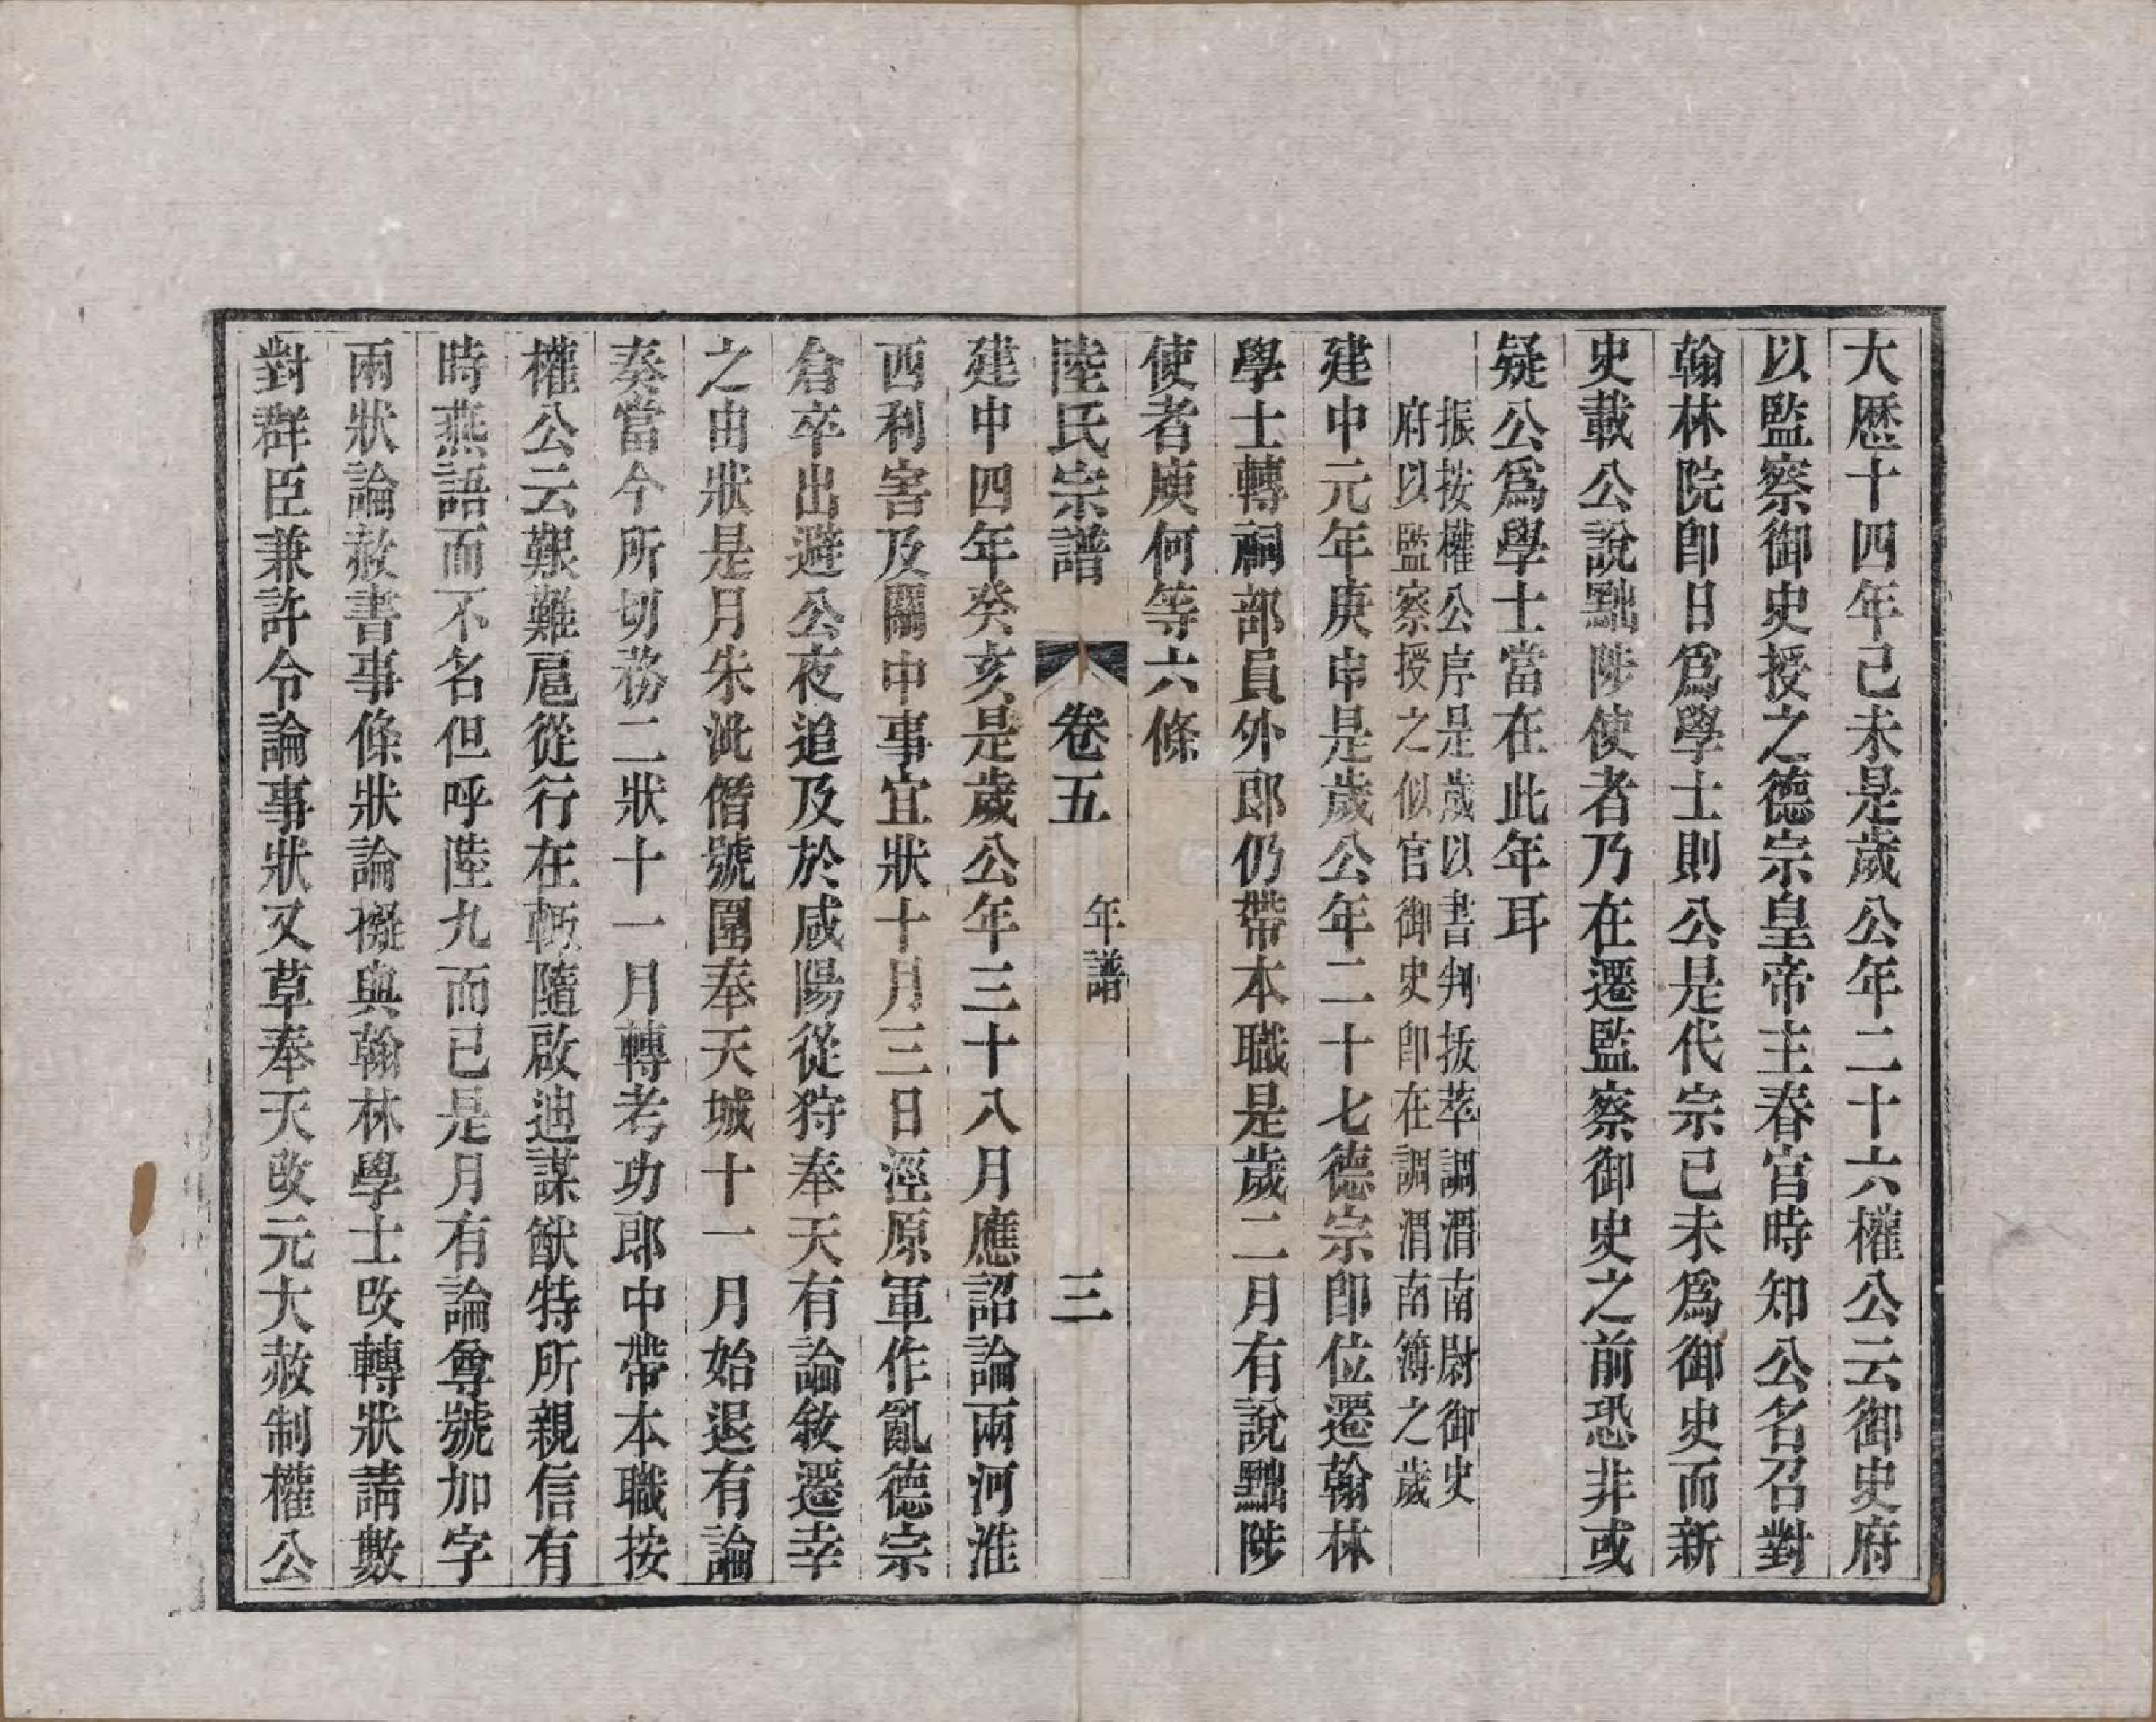 大歷十四年己未是歲公年二十六權公云御史府
以監察御史授之德宗皇帝主春宮時知公名召對
翰林院卽日爲學士則公是代宗已未爲御史而新
史載公說黜陟使者乃在遷監察御史之前恐非或
疑公爲學士當在此年耳
振按權公序是歲以書判拔萃調渭南尉御史
府以監察授之似官御史卽在調渭南簿之歲
建中元年庚申是歲公年二十七德宗卽位遷翰林
學士轉祠部員外郎仍帶本職是歲二月有說黜陟
使者庾何等六條
陸氏宗譜 卷五 年譜 三
建中四年癸亥是歲公年三十八月應詔論兩河淮
西利害及關中事宜狀十月三日涇原軍作亂德宗
倉卒出避公夜追及於咸陽從狩奉天有論敘遷幸
之由狀是月朱泚僭號圍奉天城十一月始退有論
奏當今所切務二狀十一月轉考功郎中帶本職按
權公云艱難扈從行在輒隨啟迪謀猷特所親信有
時燕語而不名但呼陸九而已是月有論尊號加字
兩狀論赦書事條狀論擬與翰林學士改轉狀請數
對群臣兼許令論事狀又草奉天改元大赦制權公